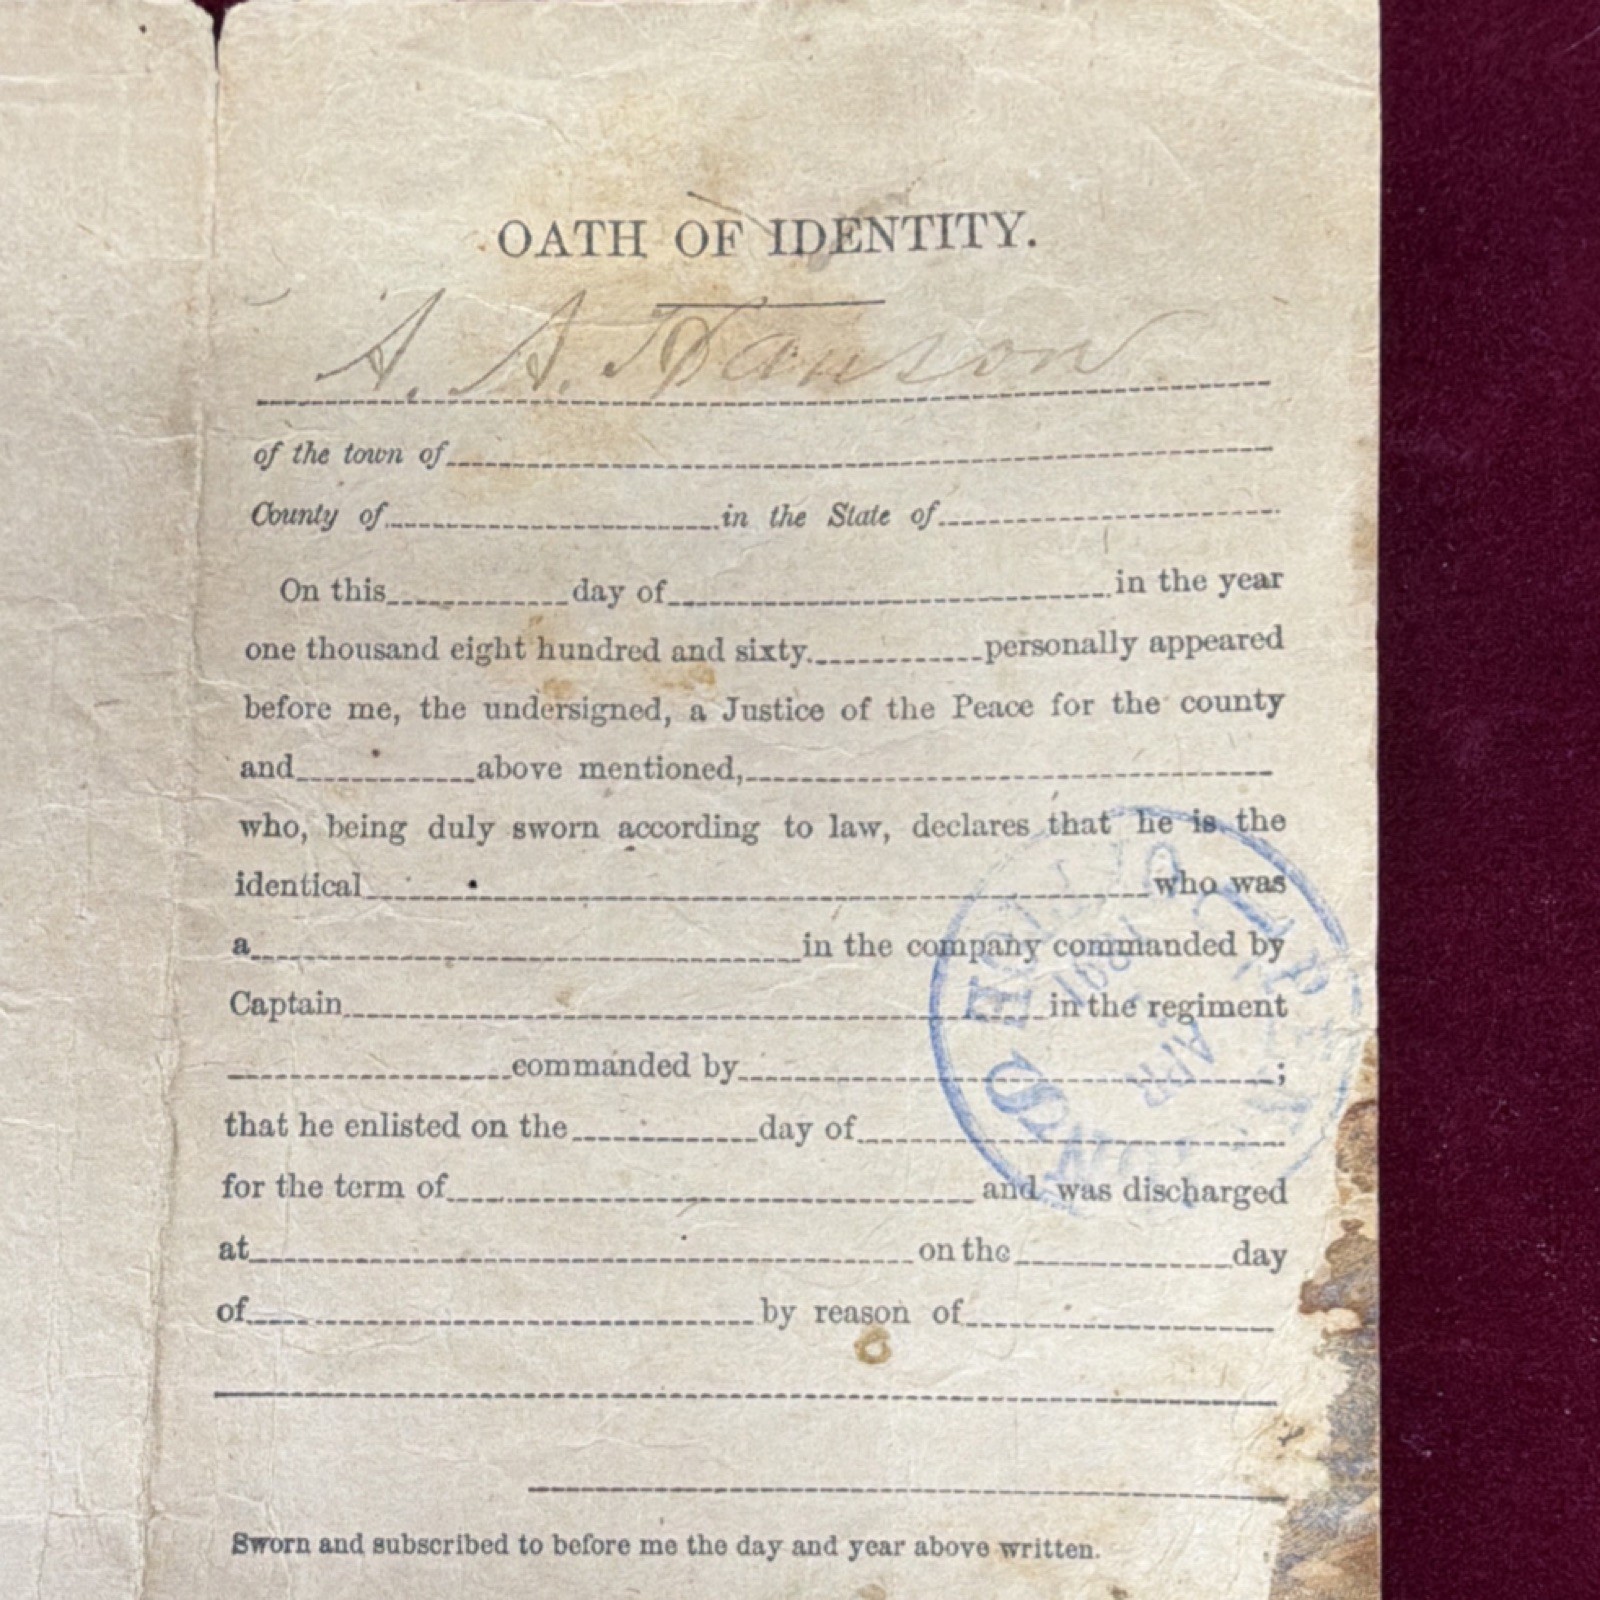 OATH OF IDENTITY.
A. A. Hanson
of the town of
County of in the State of
On this day of in the year
one thousand eight hundred and sixty personally appeared
before me, the undersigned, a Justice of the Peace for the county
and above mentioned,
who, being duly sworn according to law, declares that he is the
identical who was
a in the company commanded by
Captain in the regiment
commanded by ;
that he enlisted on the day of
for the term of and was discharged
at on the day
of by reason of
Sworn and subscribed to before me the day and year above written.
APR